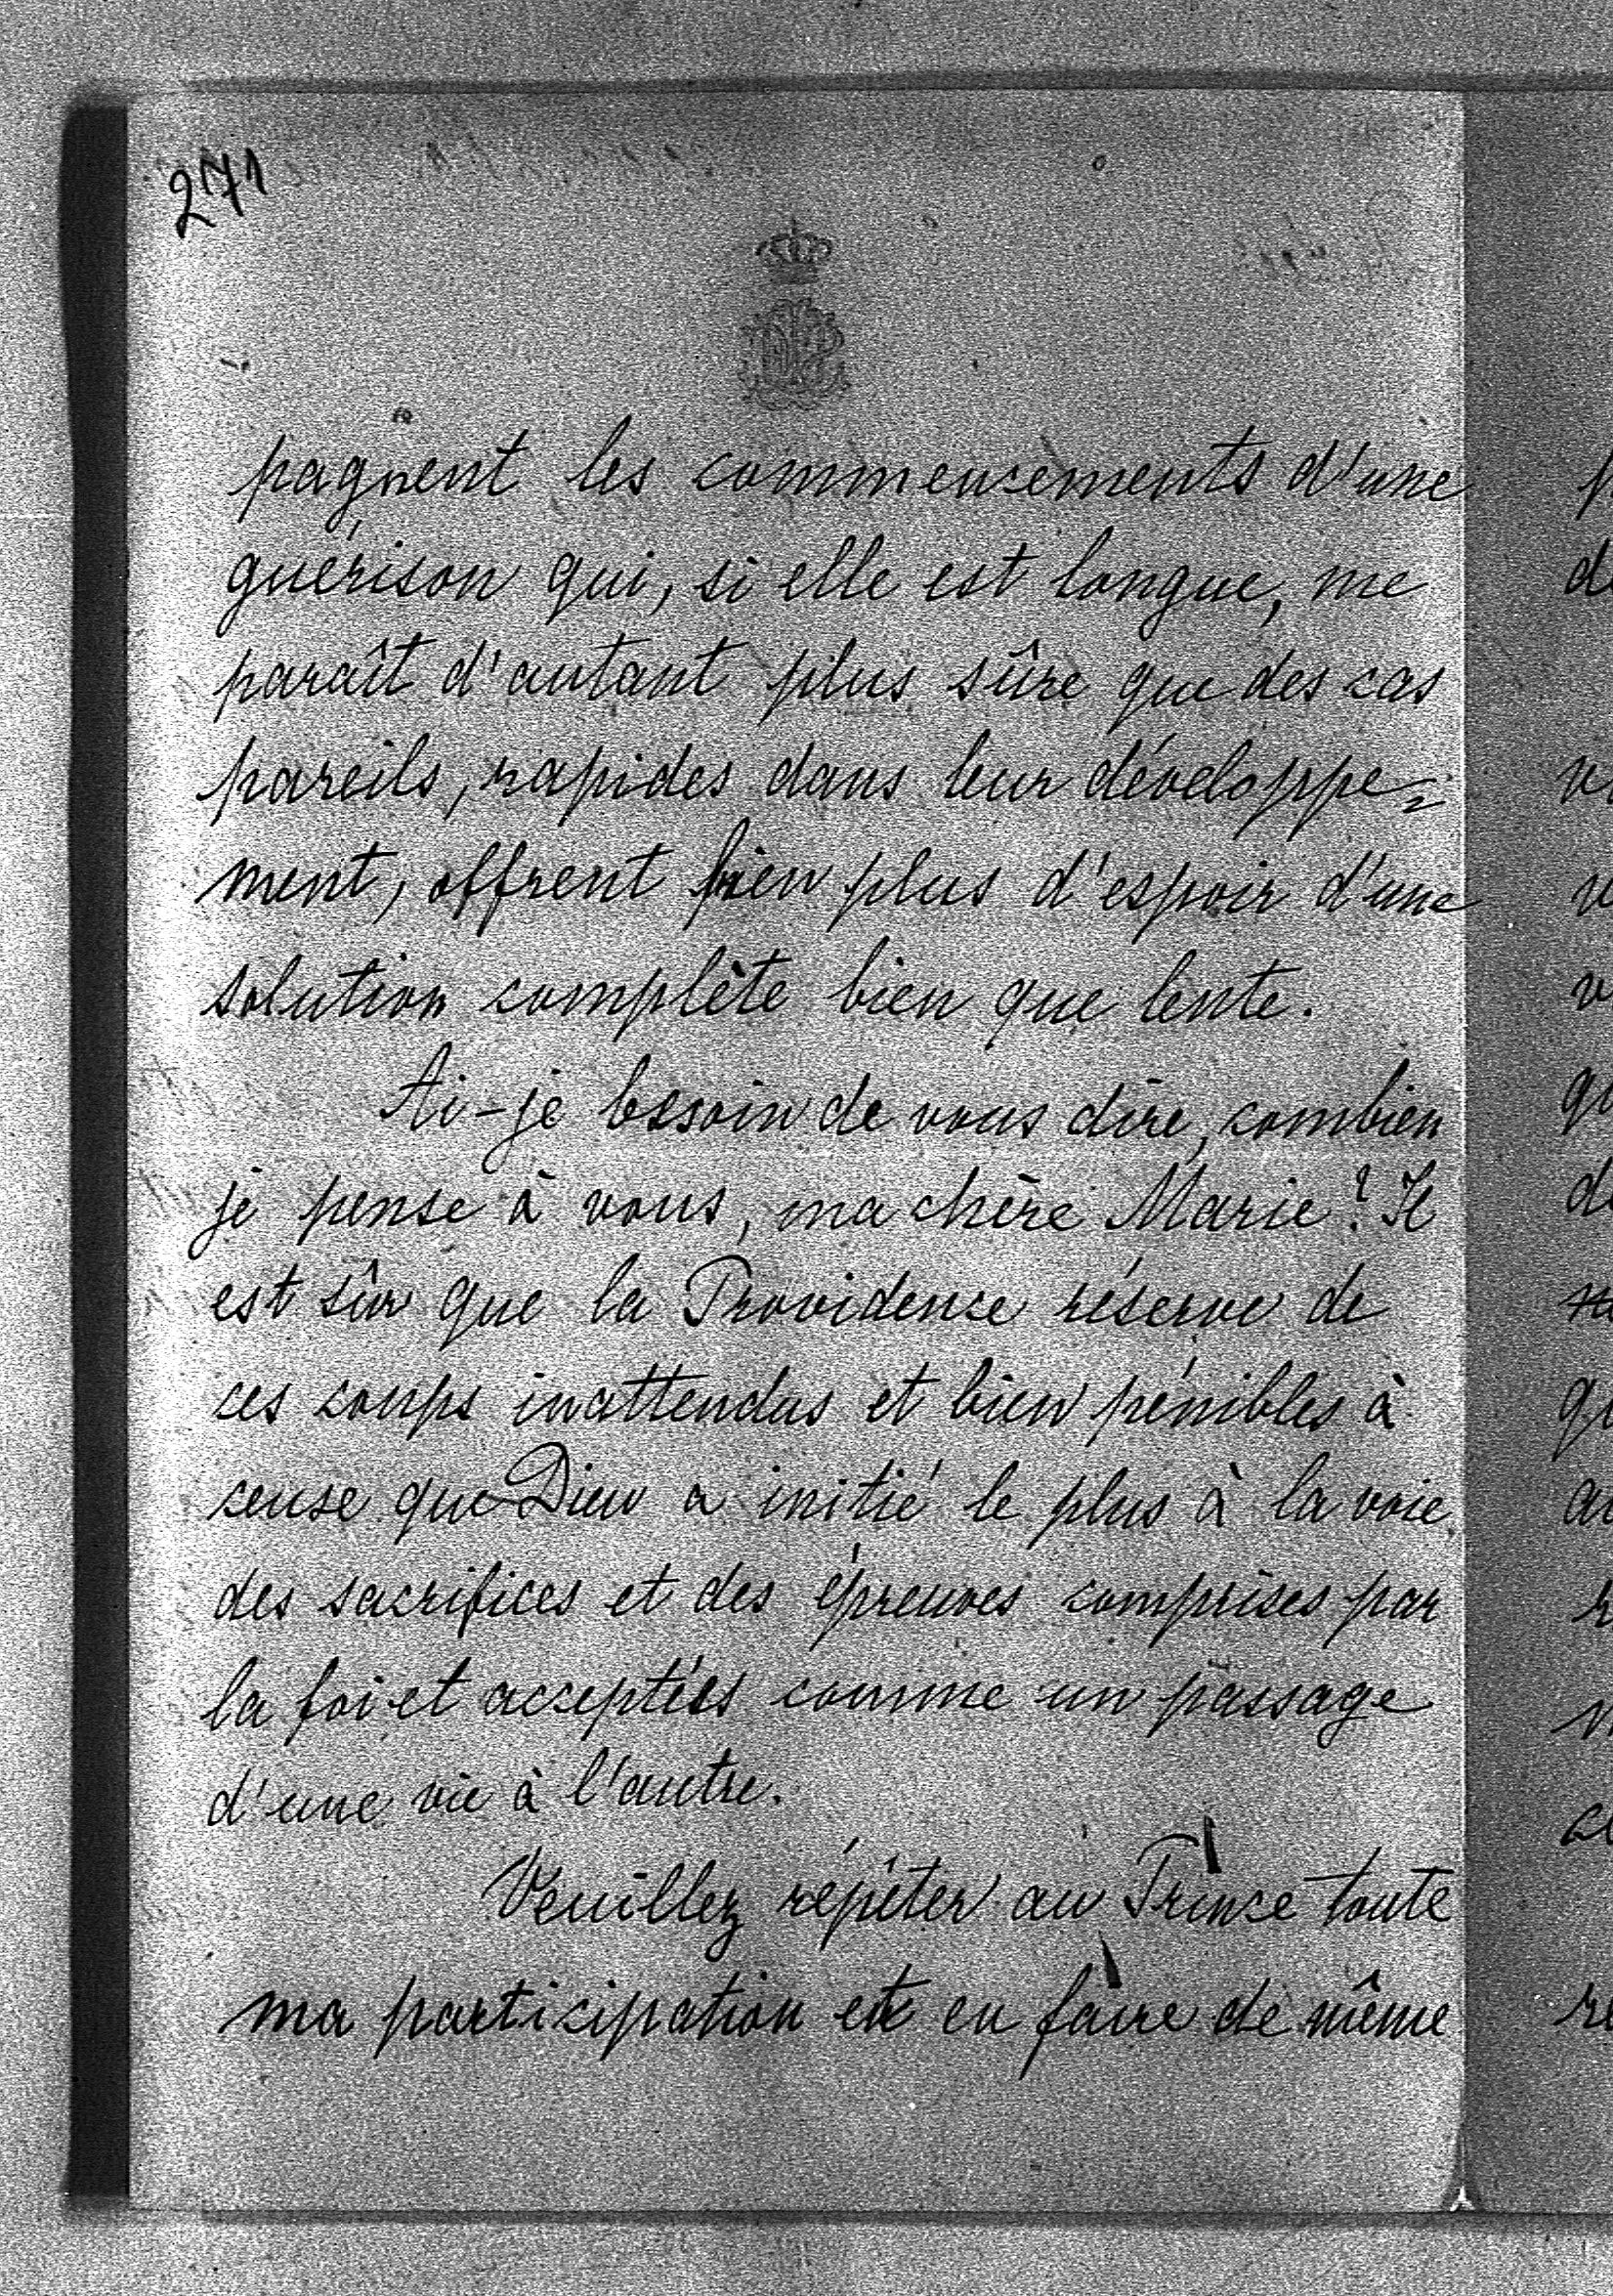 271
pagnent les commencements d'une
guérison qui, si elle est longue, me
paraît d'autant plus sûre que des cas
pareils, rapides dans leur développe=
ment, offrent bien plus d'espoir d'une
solution complète bien que lente.
Ai-je besoin de vous dire, combien
je pense à vous, ma chère Marie? Il
est sûr que la Providence réserve de
ces coups inattendus et bien pénibles à
ceux que Dieu a initié le plus à la voie
des sacrifices et des épreuves comprises par
la foi et acceptées comme un passage
d'une vie à l'autre.
Veuillez répéter au Prince toute
ma participation et en faire de même